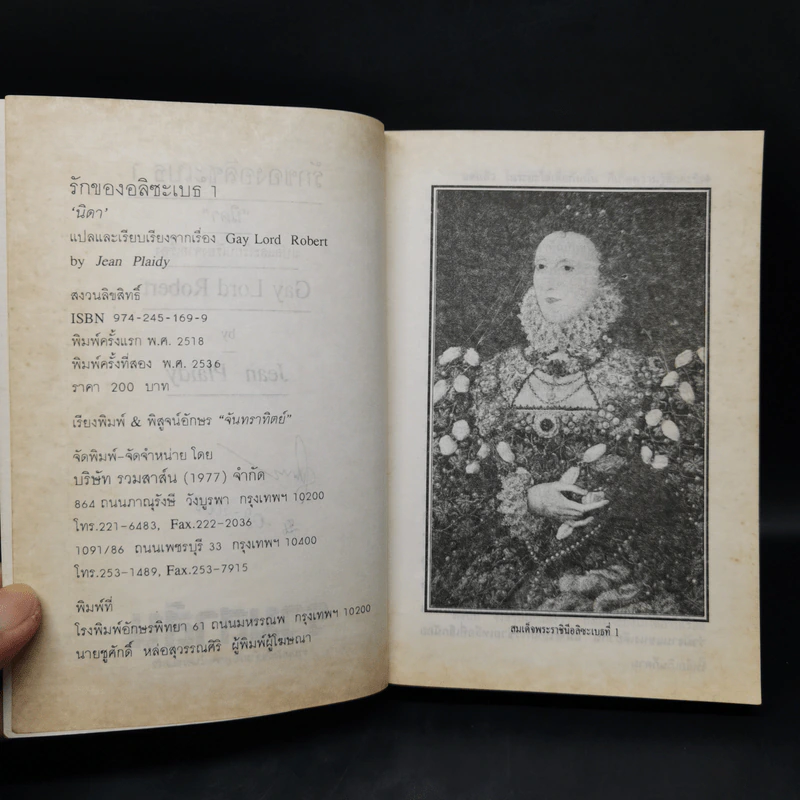 รักของอลิซะเบธ 1
‘นิดา’
แปลและเรียบเรียงจากเรื่อง Gay Lord Robert
by Jean Plaidy
สงวนลิขสิทธิ์
ISBN 974-245-169-9
พิมพ์ครั้งแรก พ.ศ. 2518
พิมพ์ครั้งที่สอง พ.ศ. 2536
ราคา 200 บาท
เรียงพิมพ์ & พิสูจน์อักษร “จันทราทิตย์”
จัดพิมพ์-จัดจำหน่าย โดย
บริษัท รวมสาส์น (1977) จำกัด
864 ถนนภาณุรังษี วังบูรพา กรุงเทพฯ 10200
โทร.221-6483, Fax.222-2036
1091/86 ถนนเพชรบุรี 33 กรุงเทพฯ 10400
โทร.253-1489, Fax.253-7915
พิมพ์ที่
โรงพิมพ์อักษรพิทยา 61 ถนนมหรรณพ กรุงเทพฯ 10200
นายชูศักดิ์ หล่อสุวรรณศิริ ผู้พิมพ์ผู้โฆษณา
สมเด็จพระราชินีอลิซะเบธที่ 1